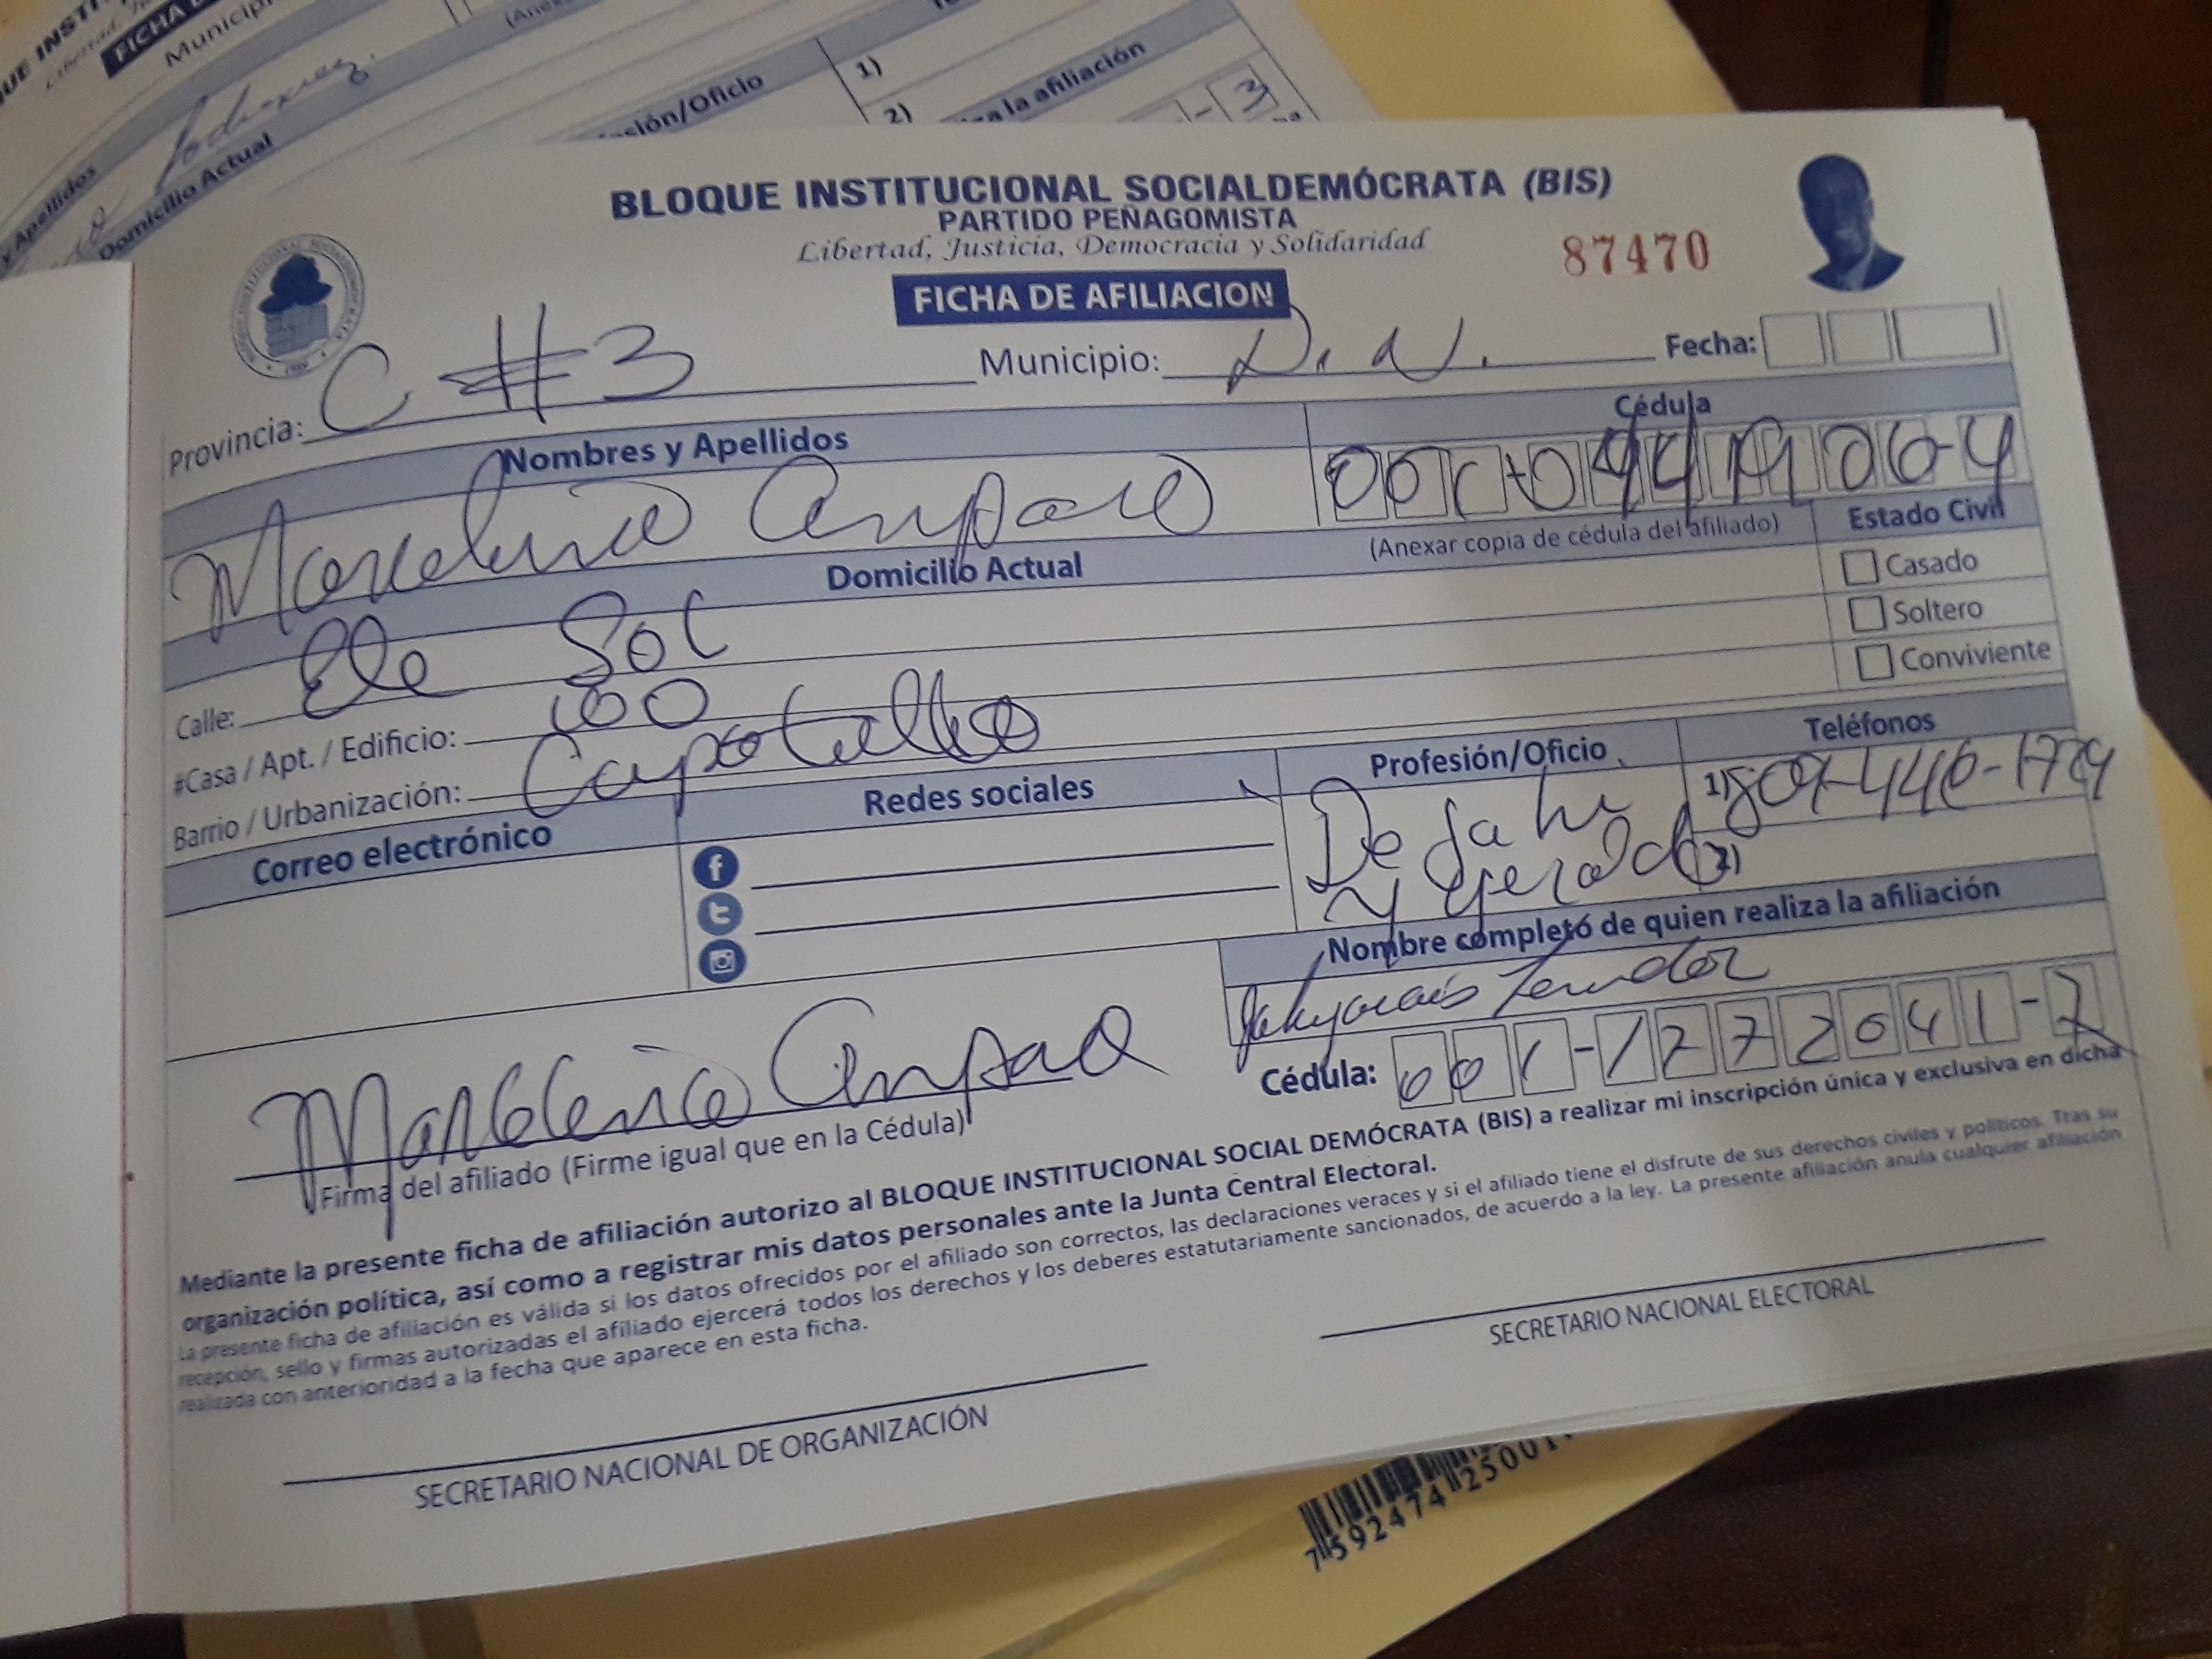 FICHA
Municipi
(Anex
Rodriguez
y Apellidos
Domicilio Actual
sión/Oficio
1)
2)
za la afiliación
- 3
BLOQUE INSTITUCIONAL SOCIALDEMÓCRATA (BIS)
PARTIDO PEÑAGOMISTA
Libertad, Justicia, Democracia y Solidaridad
87470
FICHA DE AFILIACION
Provincia: C #3 Municipio: D.N. Fecha:
Nombres y Apellidos Cédula
Marcelino Amparo
(Anexar copia de cédula del afiliado) Estado Civil
Domicilio Actual
Casado
Soltero
Conviviente
Calle: Ele Sol
#Casa / Apt. / Edificio: 100
Barrio / Urbanización: Capotillo
Correo electrónico Redes sociales Profesión/Oficio Teléfonos
1) 809-446-1779
2)
Nombre completo de quien realiza la afiliación
Cédula: 001-1272041-7
Marcelino Amparo
Firma del afiliado (Firme igual que en la Cédula)
Mediante la presente ficha de afiliación autorizo al BLOQUE INSTITUCIONAL SOCIAL DEMÓCRATA (BIS) a realizar mi inscripción única y exclusiva en dicha
organización política, así como a registrar mis datos personales ante la Junta Central Electoral.
La presente ficha de afiliación es válida si los datos ofrecidos por el afiliado son correctos, las declaraciones veraces y si el afiliado tiene el disfrute de sus derechos civiles y políticos. Tras su
recepción, sello y firmas autorizadas el afiliado ejercerá todos los derechos y los deberes estatutariamente sancionados, de acuerdo a la ley. La presente afiliación anula cualquier afiliación
realizada con anterioridad a la fecha que aparece en esta ficha.
SECRETARIO NACIONAL DE ORGANIZACIÓN
SECRETARIO NACIONAL ELECTORAL
7 592474 25001